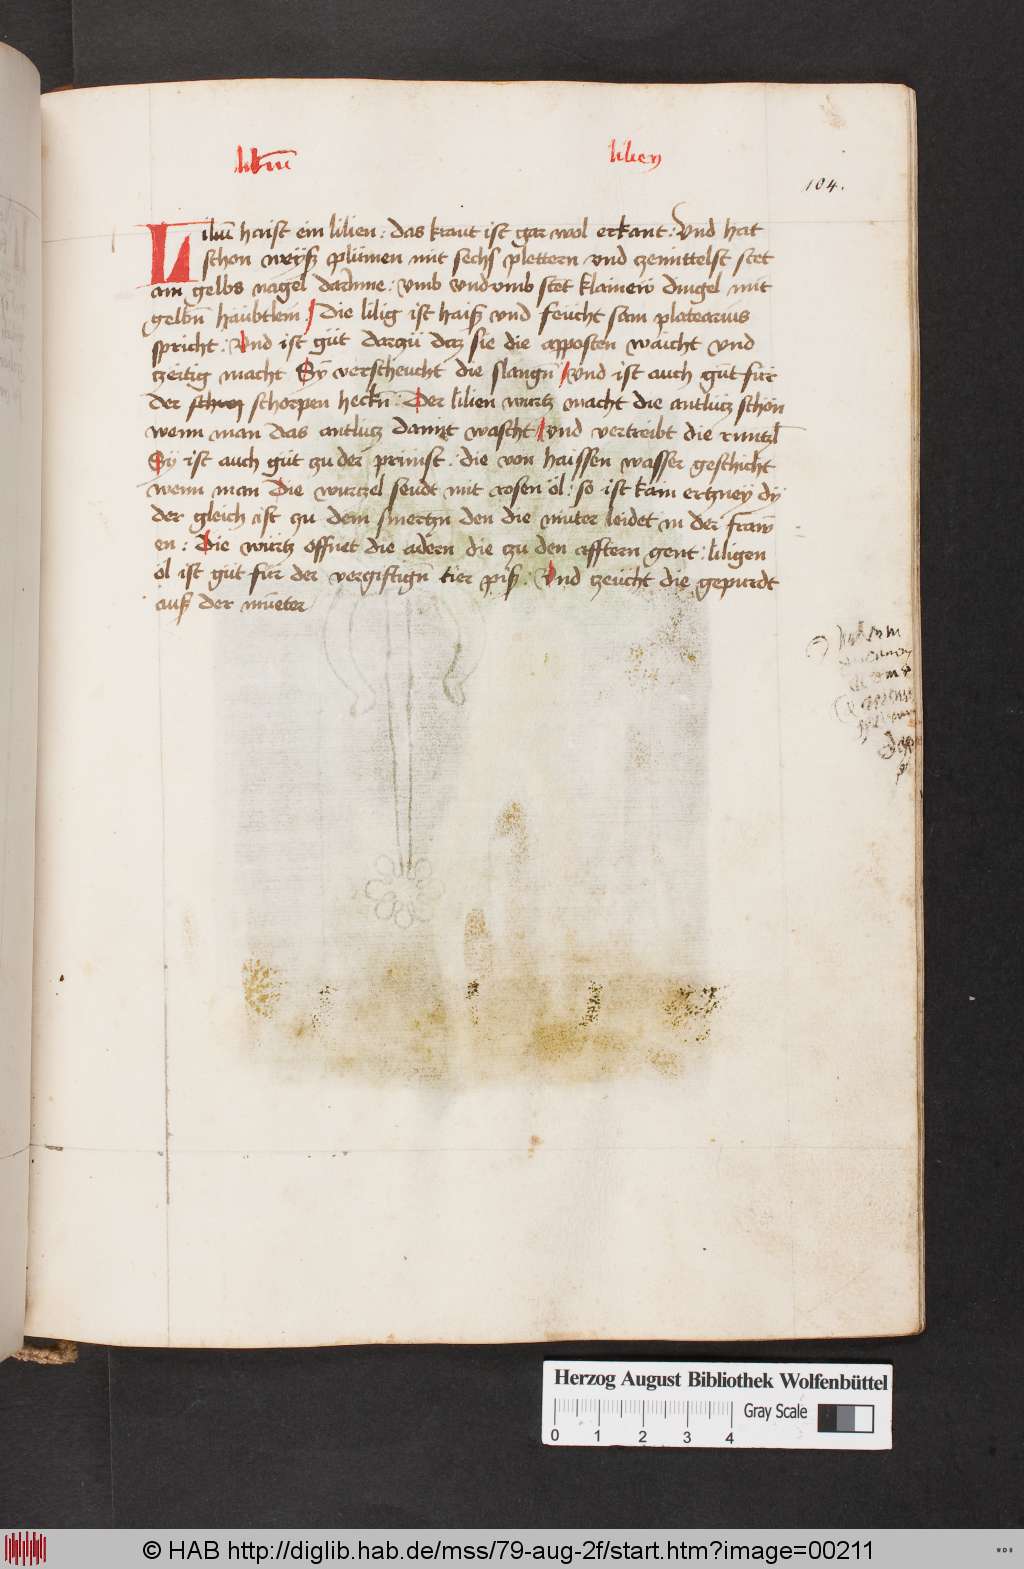 liliu᷑ lilien
104.
Liliū haist ein lilien : das kraut ist gar wol erkant : Und hat
schon weyß plümen mit sechs plettern vnd zemittelst stet
ain gelbs nagel darinne : vmb vnd vmb stet klainew dingel mit
gelbn̄ haübtlein / Die lilig ist haiß vnd feücht sam platearius
spricht : Und ist güt darzü daz sie die apposten waicht vnd
zeitig macht Sy verscheucht die slangn̄ / Und ist auch güt für
der schorpen heckn̄ : Der lilien wurtz macht die antlütz schön
wenn man das antlütz damit wascht / vnd vertreibt die runtzl
Sy ist auch güt zu der prünst : die von haissen wasser geschicht
wenn man Die wurtzel seudt mit rosen öl : so ist kain ertzney dy
der gleich ist zu dem smertzn den die müter leidet in der fraw
en : Die würtz offnet die adern die zu den afftern gent : liligen
öl ist güt für der vergiftign̄ tier piß : Und zeücht die gepurdt
auß der müeter
Herzog August Bibliothek Wolfenbüttel
Gray Scale
0 1 2 3 4
© HAB http://diglib.hab.de/mss/79-aug-2f/start.htm?image=00211